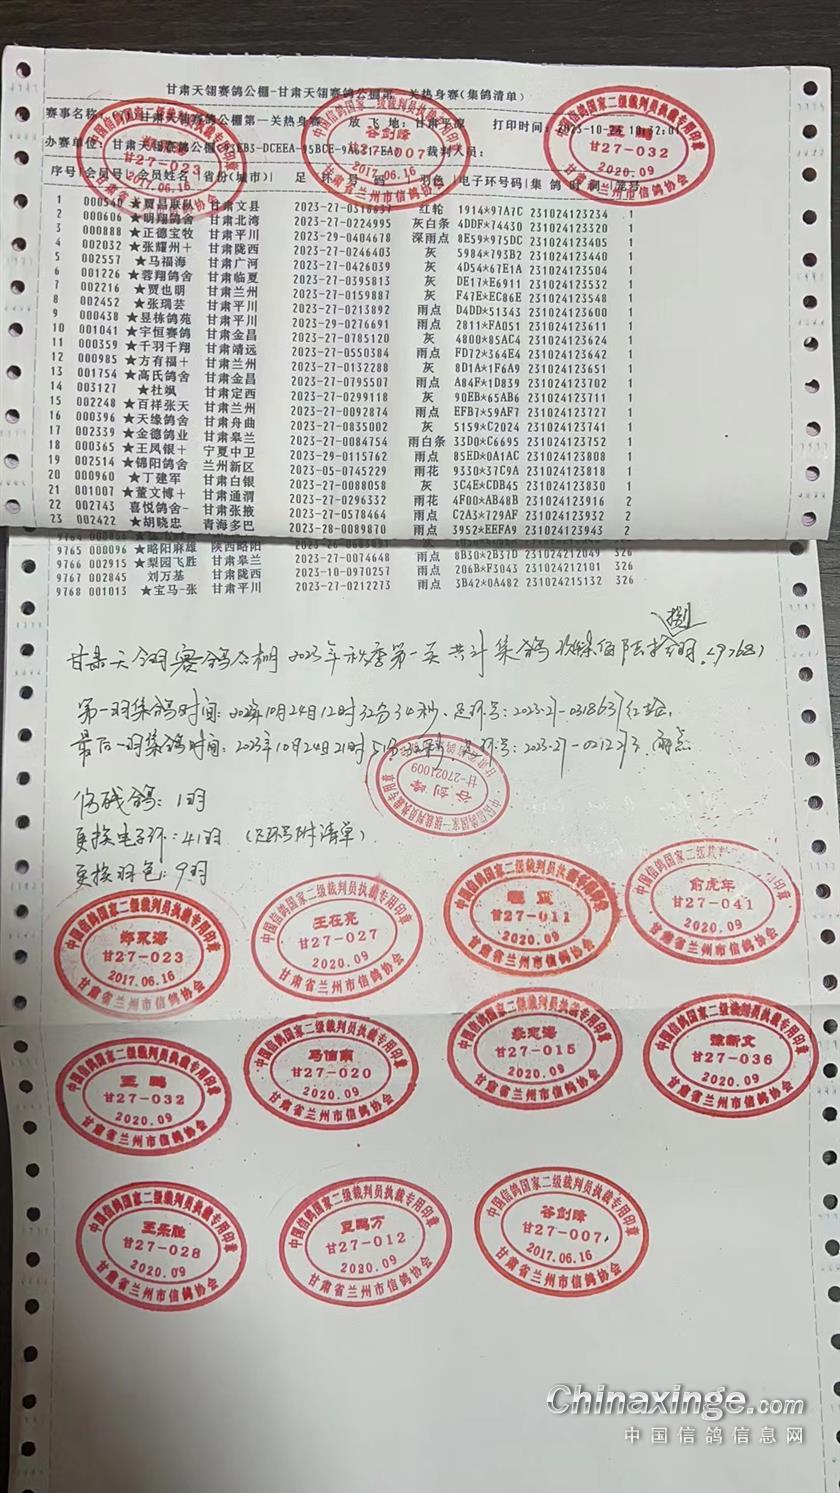 甘肃天翎赛鸽公棚-甘肃天翎赛鸽公棚第一关热身赛(集鸽清单)
赛事名称: 甘肃天翎赛鸽公棚第一关热身赛 放 飞 地: 甘肃平凉 打印时间: 2023-10-24 10:32:01
办赛单位: 甘肃天翎赛鸽公棚 裁判人员:
序号|会员号|会员姓名|省份(城市)| 足 环 号 码 |羽色|电子环号码|集 鸽 时 间|笼号
1 000540 ★贾昌联队 甘肃文县 2023-27-0318637 红轮 1914*97A7C 231024123234 1
2 000606 ★明翔鸽舍 甘肃北湾 2023-27-0224995 灰白条 4DDF*74430 231024123320 1
3 000888 ★正德宝牧 甘肃平川 2023-29-0404678 深雨点 8E59*975DC 231024123405 1
4 002032 ★张耀州+ 甘肃陇西 2023-27-0246403 灰 5984*793B2 231024123440 1
5 002557 ★马福海 甘肃广河 2023-27-0426039 灰 4D54*67E1A 231024123504 1
6 001226 ★蓉翔鸽舍 甘肃临夏 2023-27-0395813 灰 DE17*E6911 231024123532 1
7 002216 ★贾也明 甘肃兰州 2023-27-0159887 灰 F47E*EC86E 231024123548 1
8 002452 ★张瑞芸 甘肃平川 2023-27-0213892 雨点 D4DD*51343 231024123600 1
9 000438 ★昱栋鸽苑 甘肃平川 2023-29-0276691 雨点 2811*FA051 231024123611 1
10 001041 ★宇恒赛鸽 甘肃金昌 2023-27-0785120 灰 4800*85AC4 231024123624 1
11 000359 ★千羽千翔 甘肃靖远 2023-27-0550384 雨点 FD72*364E4 231024123642 1
12 000985 ★方有福+ 甘肃兰州 2023-27-0132288 灰 8D1A*1F6A9 231024123651 1
13 001754 ★高氏鸽舍 甘肃金昌 2023-27-0795507 雨点 A84F*1D839 231024123702 1
14 003127 ★杜飒 甘肃定西 2023-27-0299118 灰 90EB*65AB6 231024123711 1
15 002248 ★百祥张天 甘肃兰州 2023-27-0092874 雨点 EFB7*59AF7 231024123727 1
16 000396 ★天缘鸽舍 甘肃舟曲 2023-27-0835002 灰 5159*C2024 231024123741 1
17 002339 ★金德鸽业 甘肃皋兰 2023-27-0084754 雨白条 33D0*C6695 231024123752 1
18 000365 ★王凤银+ 宁夏中卫 2023-29-0115762 雨点 85ED*0A1AC 231024123808 1
19 002514 ★锦阳鸽舍 兰州新区 2023-05-0745229 雨花 9330*37C9A 231024123818 1
20 000960 ★丁建军 甘肃白银 2023-27-0088058 灰 3C4E*CDB45 231024123830 1
21 001007 ★董文博+ 甘肃通渭 2023-27-0296332 雨花 4F00*AB48B 231024123916 2
22 002743 喜悦鸽舍- 甘肃张掖 2023-27-0578464 雨点 C2A3*729AF 231024123932 2
23 002422 ★胡晓忠 青海多巴 2023-28-0089870 雨点 3952*EEFA9 231024123943 2
9765 000096 ★略阳麻雄 陕西略阳 2023-27-0074648 雨点 8B30*2B37D 231024212049 326
9766 002915 ★梨园飞胜 甘肃皋兰 2023-10-0970257 雨点 206B*F3043 231024212101 326
9767 002845 刘万基 甘肃陇西 2023-27-0212273 雨点 3B42*0A482 231024215132 326
9768 001013 ★宝马-张 甘肃平川
捌
甘肃天翎赛鸽公棚2023年秋季第一关共计集鸽玖仟柒佰陆拾羽.(9768)
第一羽集鸽时间:2023年10月24日12时32分34秒.足环号:2023-27-0318637红轮.
最后一羽集鸽时间:2023年10月24日21时51分32秒.足环号:2023-27-0212273.雨点
伤残鸽:1羽
更换电子环:41羽 (足环号附清单)
更换羽色:9羽
中国信鸽国家一级裁判员执裁专用印章
谷剑峰
甘-27021009
中国信鸽国家二级裁判员执裁专用印章
甘27-023
2017.06.16
甘肃省兰州市信鸽协会
王在亮
甘27-027
2020.09
甘肃省兰州市信鸽协会
甘27-011
2020.09
甘肃省兰州市信鸽协会
俞虎年
甘27-041
2020.09
甘肃省兰州市信鸽协会
王鹏
甘27-032
2020.09
甘肃省兰州市信鸽协会
甘27-020
2020.09
甘肃省兰州市信鸽协会
甘27-015
2020.09
甘肃省兰州市信鸽协会
甘27-036
2020.09
甘肃省兰州市信鸽协会
甘27-028
2020.09
甘肃省兰州市信鸽协会
甘27-012
2020.09
甘肃省兰州市信鸽协会
谷剑峰
甘27-007
2017.06.16
甘肃省兰州市信鸽协会
Chinaxinge.com
中国信鸽信息网